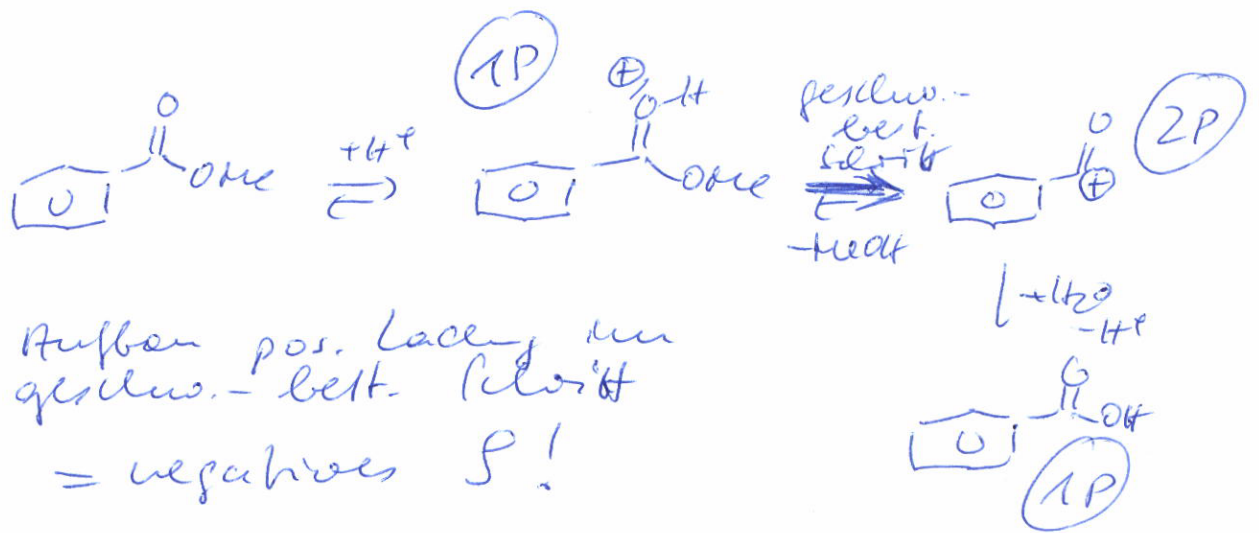 1P
⊕
O-H
O
OMe
+H⊕
O
OMe
geschw.-
best.
Schritt
-MeOH
O
O
⊕
2P
+H2O
-H⊕
Aufbau pos. Ladung im
geschw.-best. Schritt
= negatives ρ!
O
OH
O
1P